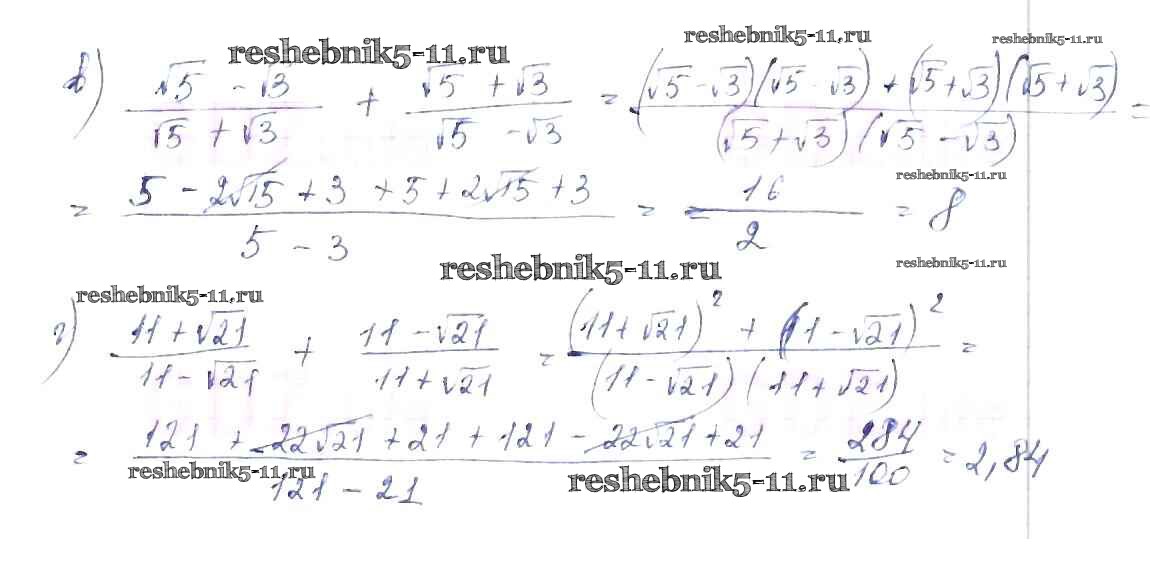 reshebnik5-11.ru reshebnik5-11.ru reshebnik5-11.ru
в) (√5 - √3)/(√5 + √3) + (√5 + √3)/(√5 - √3) = ((√5 - √3)(√5 - √3) + (√5 + √3)(√5 + √3))/((√5 + √3)(√5 - √3)) =
reshebnik5-11.ru
= (5 - 2√15 + 3 + 5 + 2√15 + 3)/(5 - 3) = = 16/2 = 8
reshebnik5-11.ru reshebnik5-11.ru
reshebnik5-11.ru
г) (11 + √21)/(11 - √21) + (11 - √21)/(11 + √21) = ((11 + √21)² + (11 - √21)²)/((11 - √21)(11 + √21)) =
= (121 + 22√21 + 21 + 121 - 22√21 + 21)/(121 - 21) = 284/100 = 2,84
reshebnik5-11.ru reshebnik5-11.ru